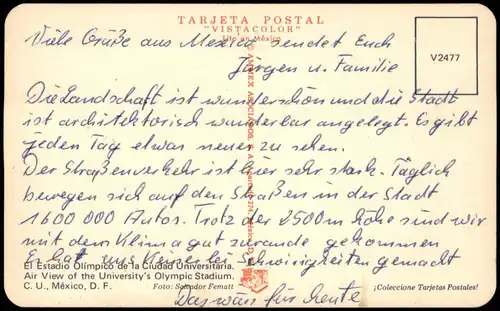 TARJETA POSTAL
"VISTACOLOR"
Lito en México
V2477
Viele Grüße aus Mexico sendet Euch
Jürgen u. Familie
Die Landschaft ist wunderschön und die Stadt
ist architektorisch wunderbar angelegt. Es gibt
jeden Tag etwas neues zu sehen.
Der Straßenverkehr ist hier sehr stark. Täglich
bewegen sich auf den Straßen in der Stadt
1600 000 Autos. Trotz der 2500m Höhe sind wir
mit dem Klima gut zurande gekommen
Er hat uns keinerlei Schwierigkeiten gemacht
El Estadio Olímpico de la Ciudad Universitaria.
Air View of the University's Olympic Stadium.
C. U., México, D. F.
Foto: Salvador Fematt
¡Coleccione Tarjetas Postales!
Das wärs für heute